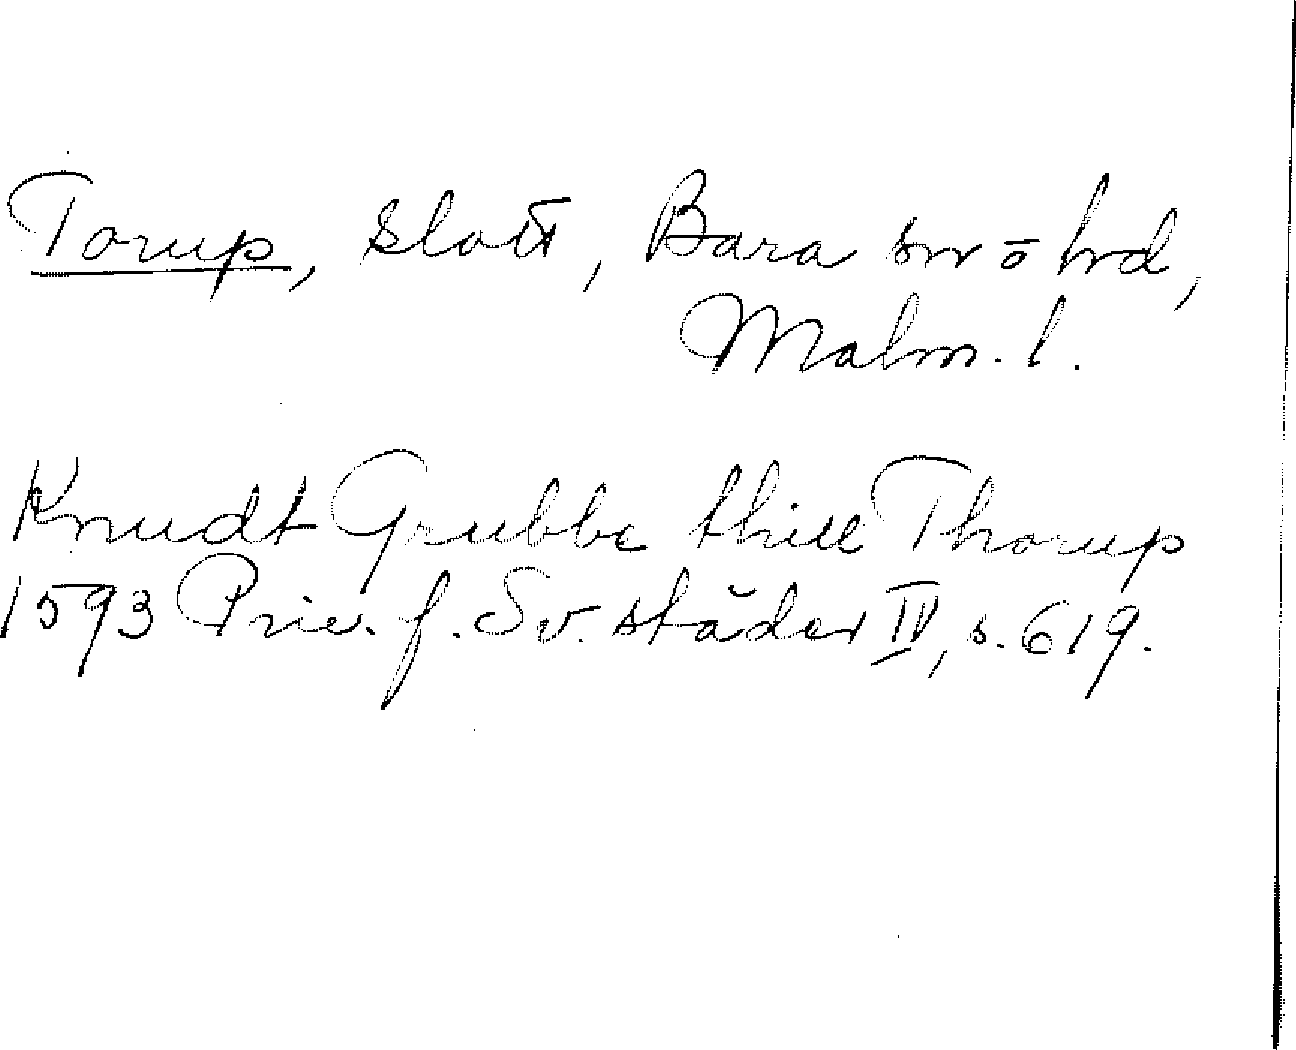 Torup, slott, Bara sn o hrd,
Malm. l.
Knudt Grubbe thill Thorup
1593 Priv. f. Sv. städer IV, s. 619.